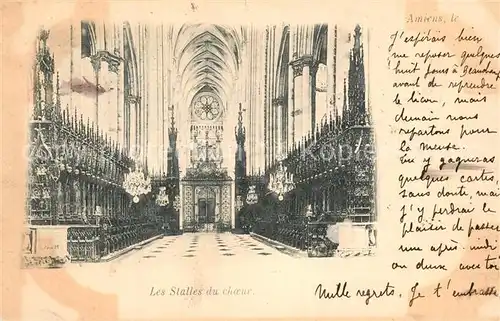 Amiens, le
J'espérais bien
me reposer quelques
huit jours à
avant de reprendre
le licou, mais
demain nous
repartons pour
la Meuse.
Tu y gagneras
quelques cartes,
sans doute, mais
j'y perdrai le
plaisir de passer
une après-midi
ou deux avec toi
Mille regrets. Je t'embrasse
Les Stalles du chœur.